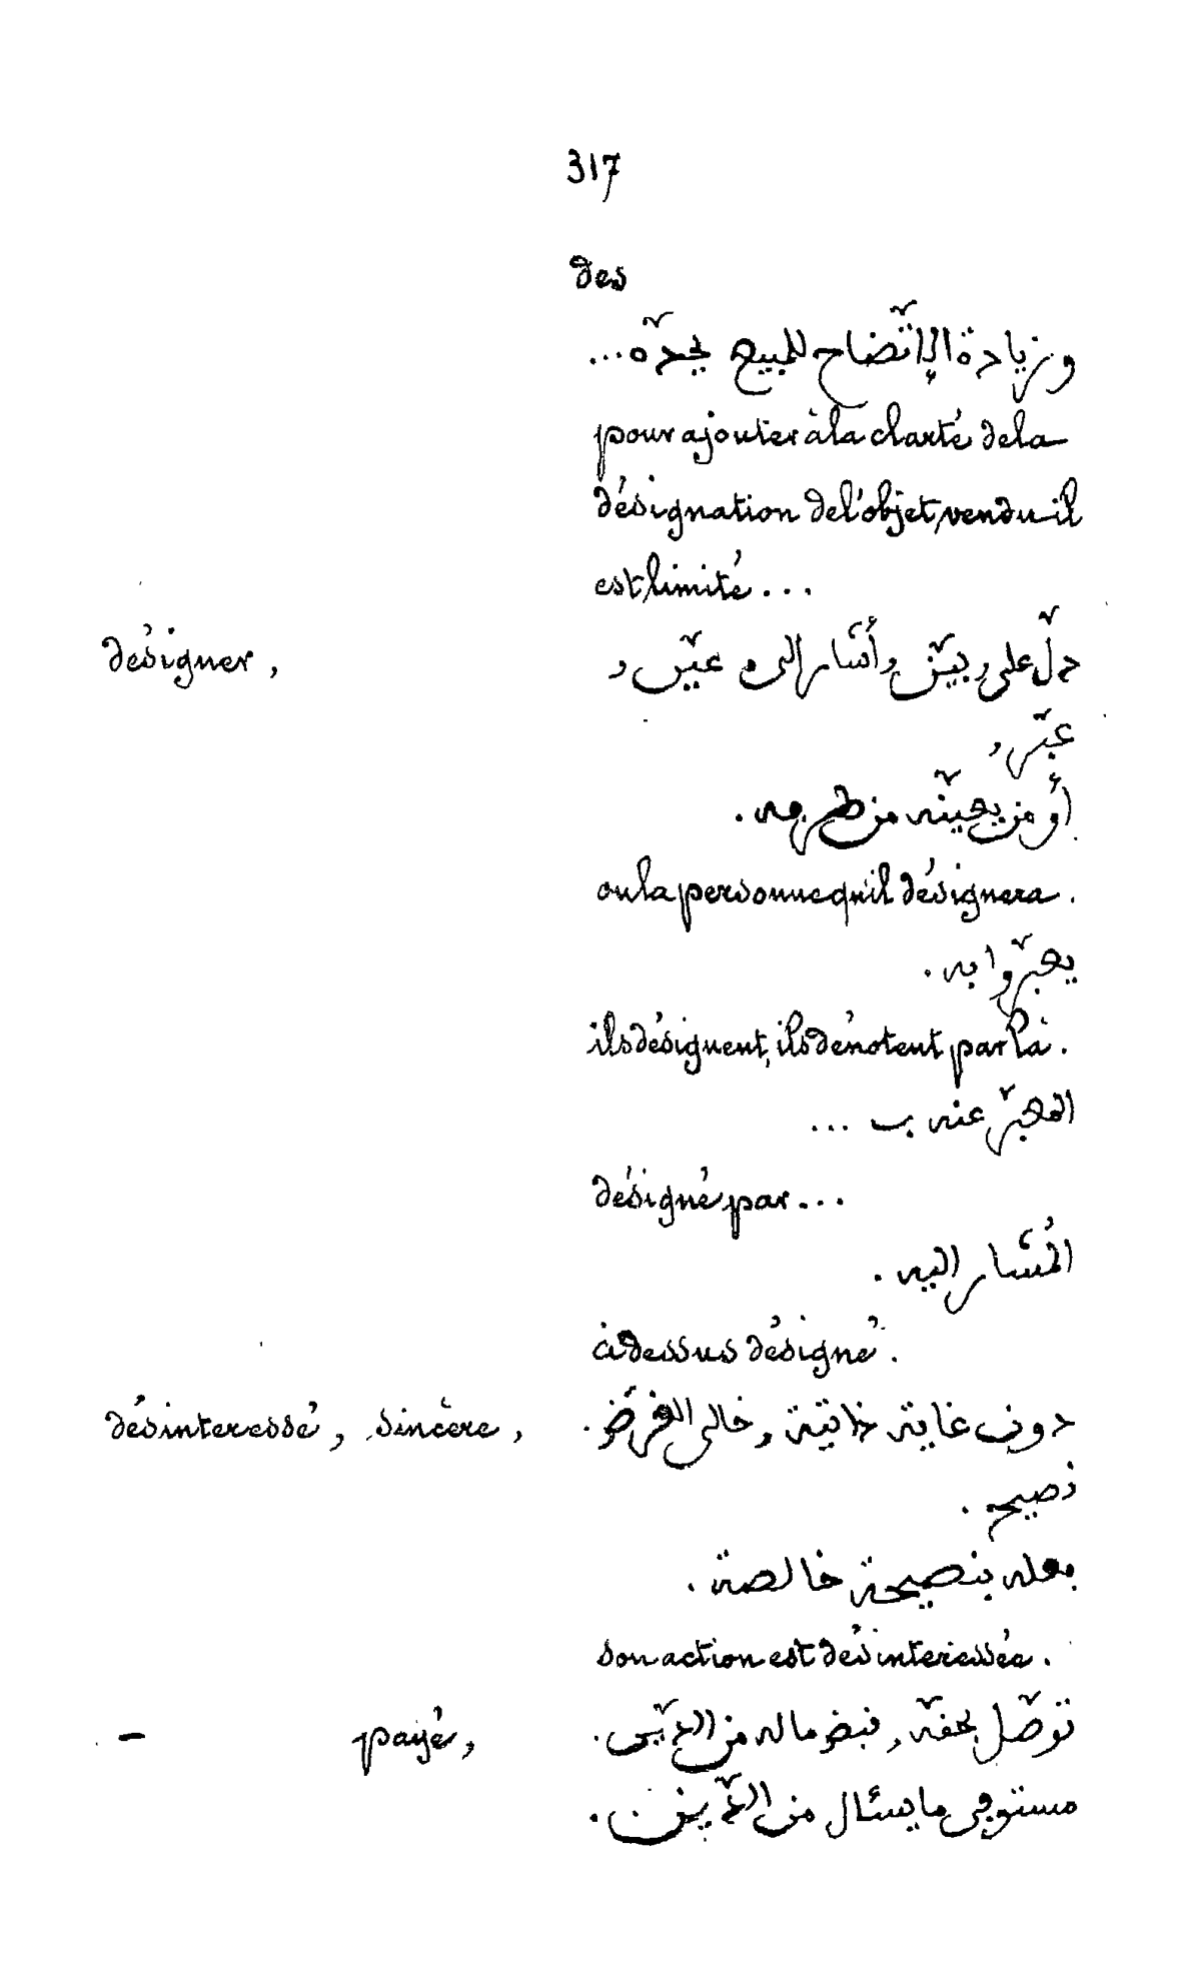 317
des
وزيادة الإتّضاح للمبيع يحدّه...
pour ajouter à la clarté de la
désignation de l'objet vendu il
est limité...
désigner, دلّ على، بيّن، وأشار الى، عيّن،
عبّر،
أو من يعيّنه من طرفه.
ou la personne qu'il désignera.
يعبّروا به.
ils désignent, ils dénotent par là.
المعبّر عنه ب ...
désigné par...
المُشار اليه.
ci dessus désigné.
désinteressé, sincère, دون غاية ذاتية، خالى الغرض.
نصيح.
فعله بنصيحة خالصة.
son action est désinteressée.
— payé, توصّل بحقّه، قبض ماله من الدّين.
مستوفى ما يسئال من الدّين.